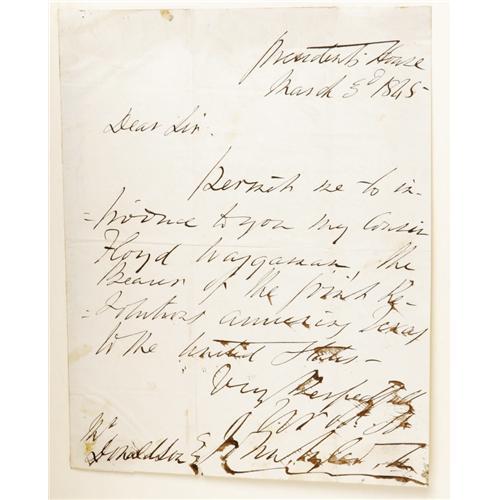 Presidents House
March 3d 1845
Dear Sir.
Permit me to in-
=troduce to you my Cousin
Floyd Waggaman, the
Bearer of the joint Re-
=solutions annexing Texas
to the United States -
Very Respectfully
Mr
Donaldson